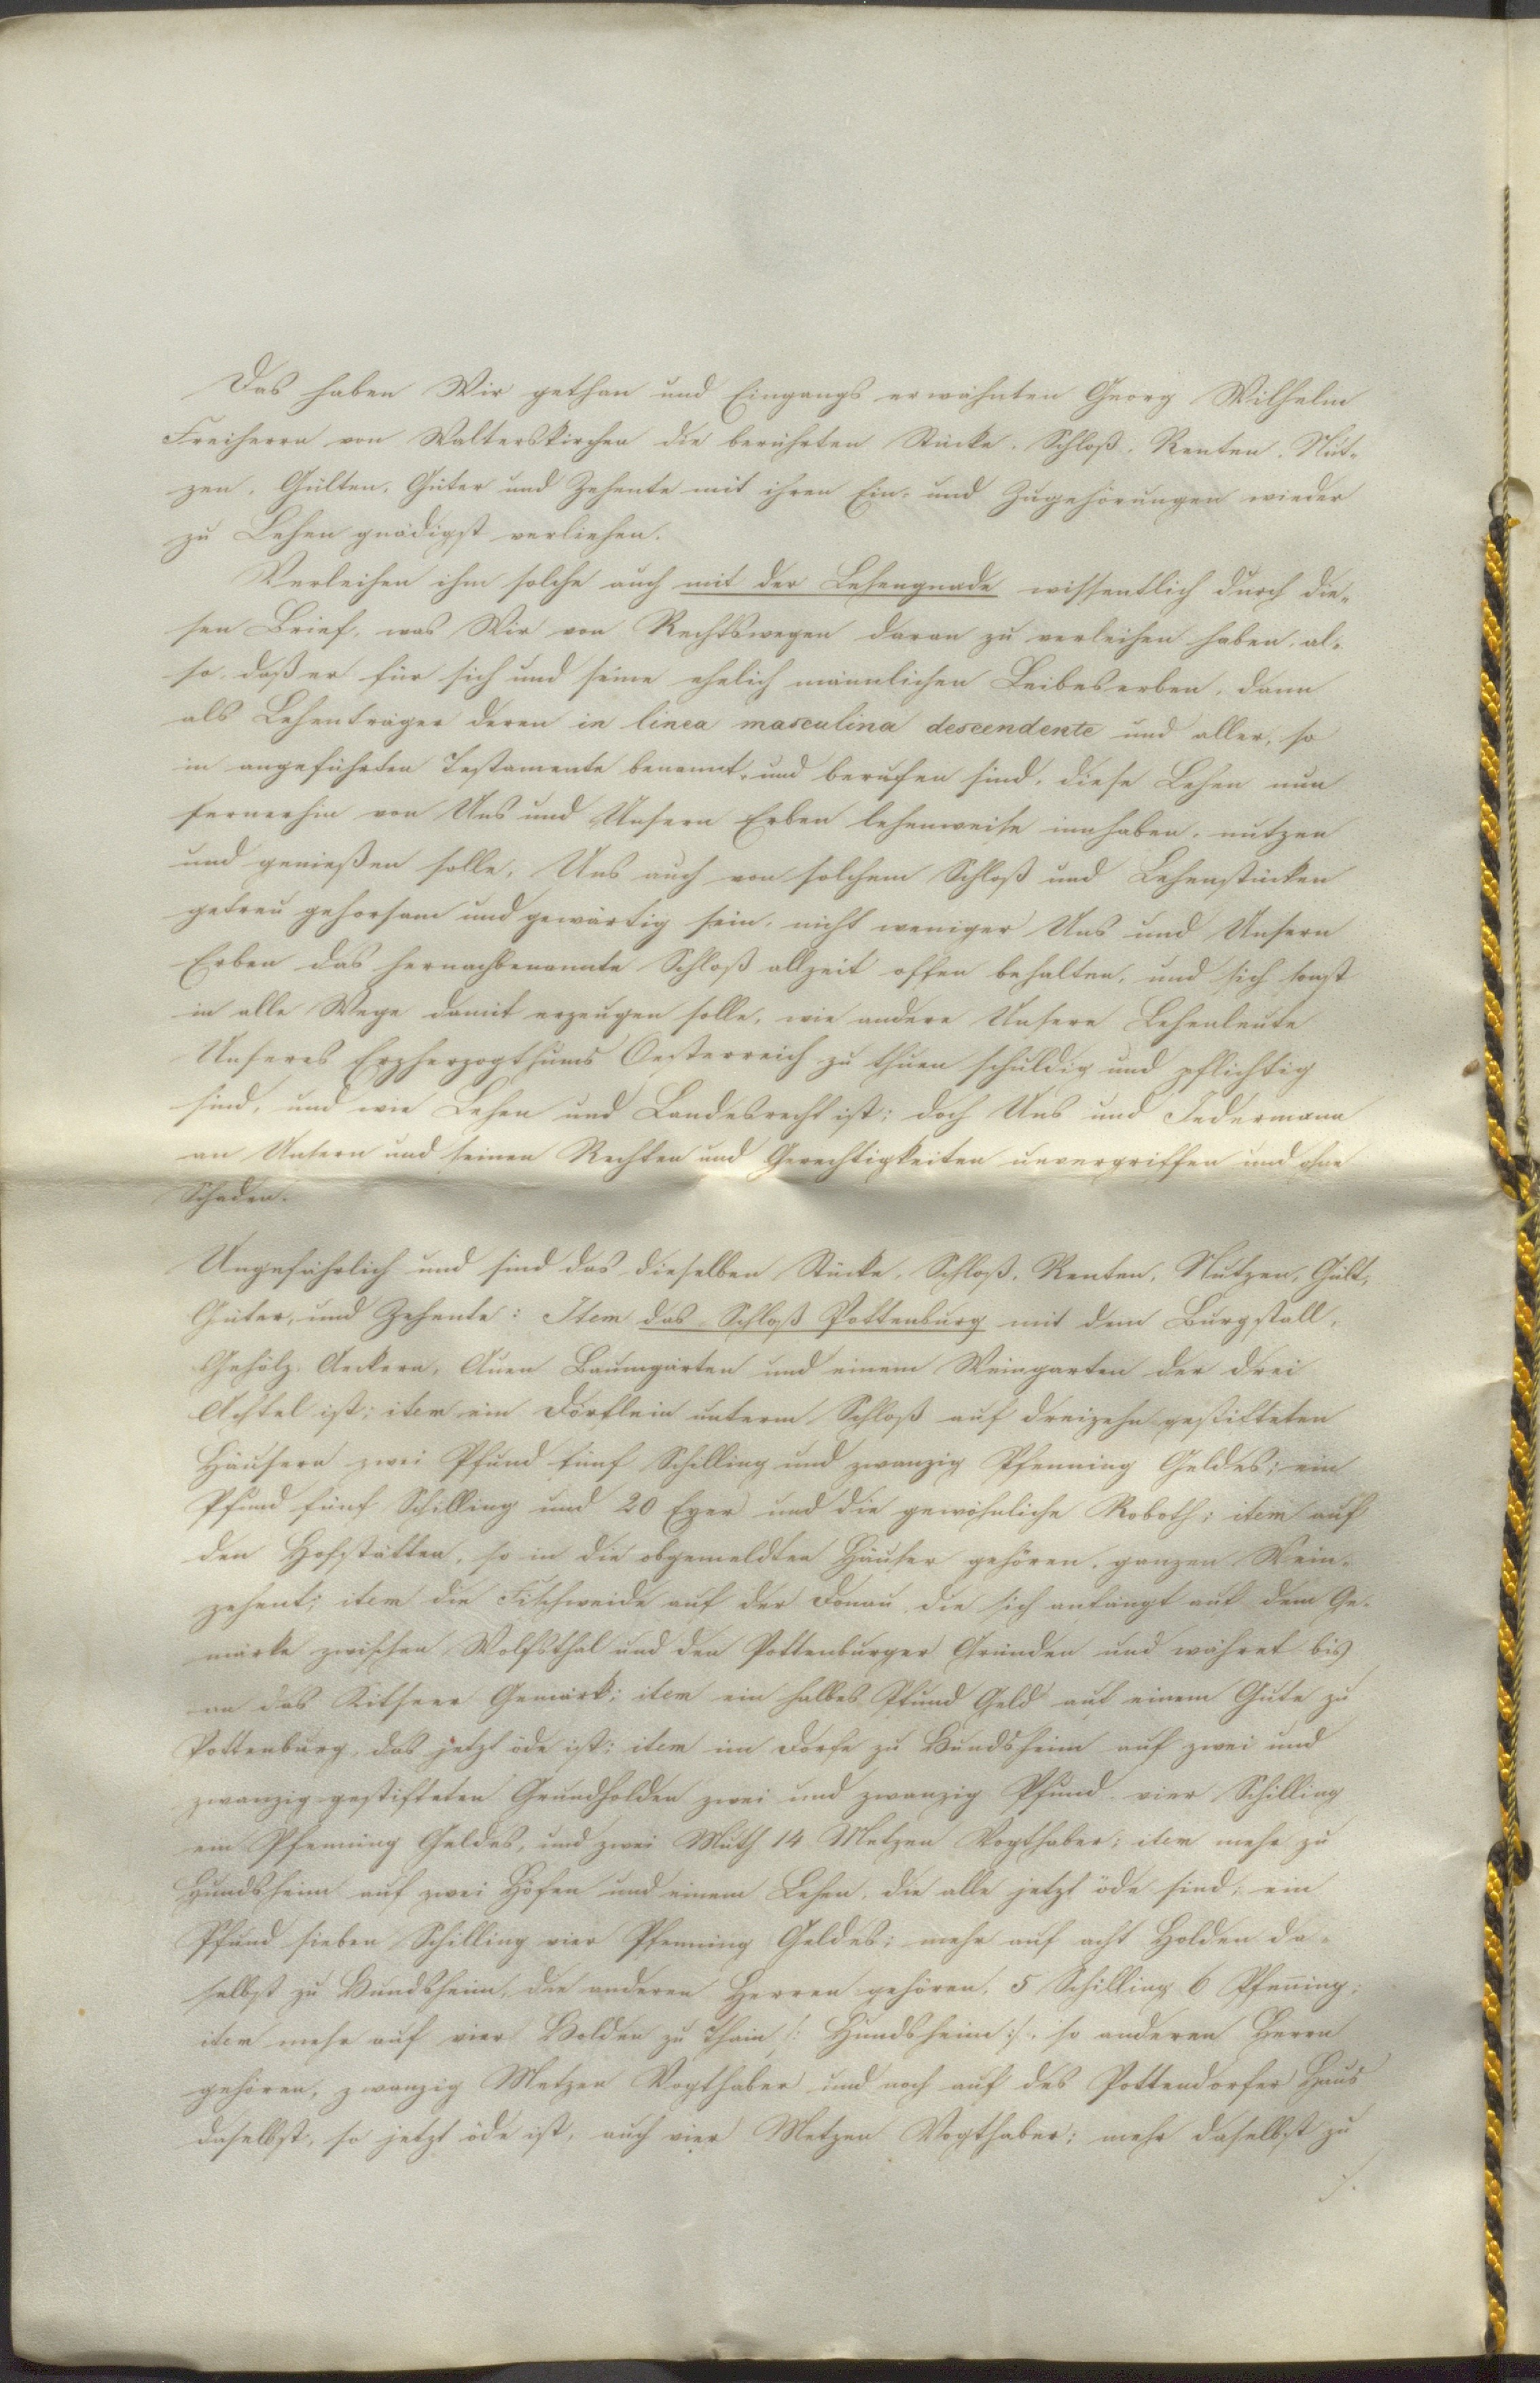 Das haben Wir gethan und Eingangs erwähnten Georg Wilhelm
Freiherrn von Walterskirchen die berührten Stücke, Schloß, Renten, Nut-
zen, Gülten, Güter und Zehente mit ihren Ein- und Zugehörungen wieder
zu Lehen gnädigst verliehen.
Verleihen ihm solche auch mit der Lehengnade wissentlich durch die-
sen Brief, was Wir von Rechtswegen daran zu verleihen haben, al-
so, daß er für sich und seine ehelich männlichen Leibeserben, dann
als Lehenträger deren in linea masculina descendente und aller, so
in angeführten Testamente benannt, und berufen sind, diese Lehen nun
fernerhin von Uns und Unsern Erben lehenweise innhaben, nutzen
und genießen solle, Uns auch von solchem Schloß und Lehenstücken
getreu gehorsam und gewärtig sein, nicht weniger Uns und Unsern
Erben das hernachbenannte Schloß allzeit offen behalten, und sich sonst
in alle Wege damit erzeugen solle, wie andere Unsere Lehenleute
Unseres Erzherzogthums Oesterreich zu thuen schuldig und pflichtig
sind, und wie Lehen und Landesrecht ist; doch Uns und Jedermann
an Unsern und seinen Rechten und Gerechtigkeiten unvergriffen und ohne
Schaden.
Ungefährlich und sind das dieselben Stücke, Schloß, Renten, Nutzen, Gült,
Güter, und Zehente: Item das Schloß Pottenburg mit dem Burgstall,
Gehölz, Aeckern, Auen Baumgärten und einem Weingarten der drei
Achtel ist; item ein Dörflein unterm Schloß auf dreizehn gestifteten
Häusern zwei Pfund fünf Schilling und zwanzig Pfenning Geldes; ein
Pfund fünf Schilling und 20 Eyer und die gewöhnliche Roboth; item auf
den Hofstätten, so in die obgemeldten Häuser gehören, ganzen Wein-
zehent; item die Fischweide auf der Donau, die sich anfängt auf dem Ge-
märke zwischen Wolfsthal und den Pottenburger Gründen und währet bis
an das Kitseer Gemärk; item ein halbes Pfund Geld auf einem Gute zu
Pottenburg, das jetzt öde ist; item im Dorfe zu Hundsheim auf zwei und
zwanzig gestifteten Grundholden zwei und zwanzig Pfund vier Schilling
ein Pfenning Geldes, und zwei Muth 14 Metzen Vogthaber; item mehr zu
Hundsheim auf zwei Höfen und einem Lehen, die alle jetzt öde sind; ein
Pfund sieben Schilling vier Pfenning Geldes; mehr auf acht Holden da-
selbst zu Hundsheim, die anderen Herren gehören, 5 Schilling 6 Pfenning;
item mehr auf vier Holden zu Thain /: Hundsheim :/, so anderen Herrn
gehören, zwanzig Metzen Vogthaber und noch auf des Pottendorfer Haus
daselbst, so jetzt öde ist, auch vier Metzen Vogthaber; mehr daselbst zu
./.